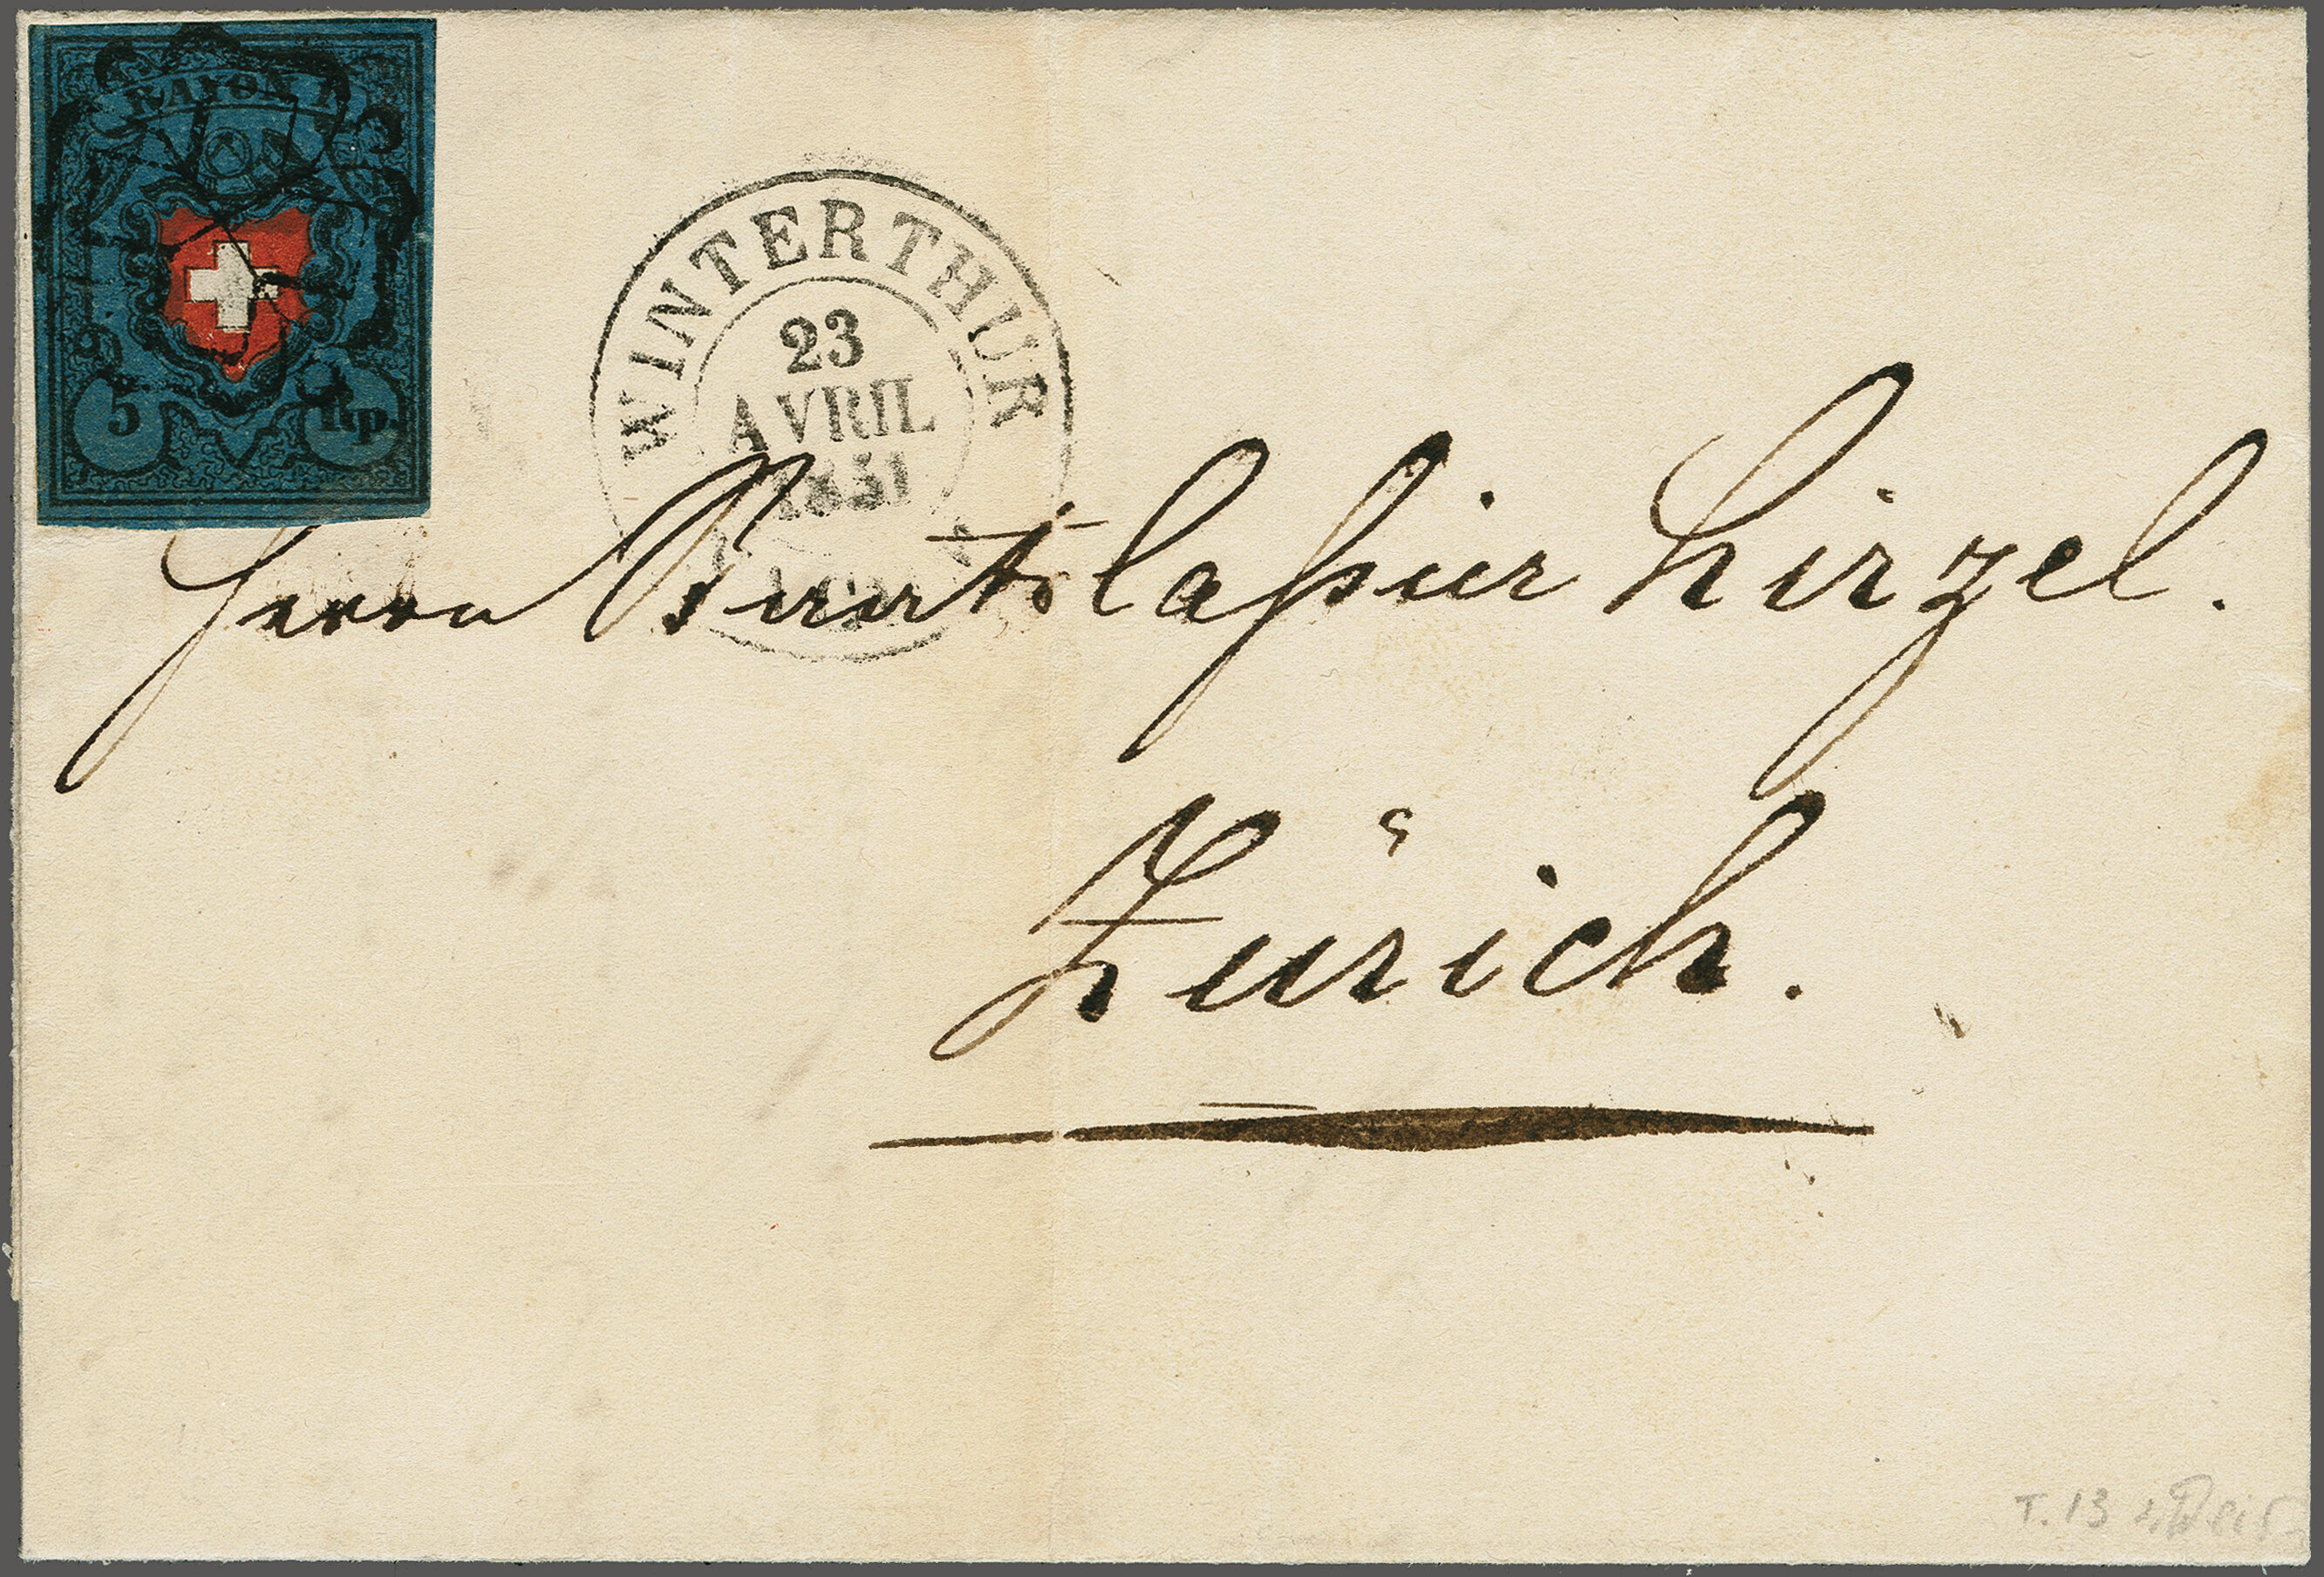 RAYON I.
5 Rp.
WINTERTHUR
23
AVRIL
1851
Herrn Amtslaßier Hirzel.
Zürich.
T. 13